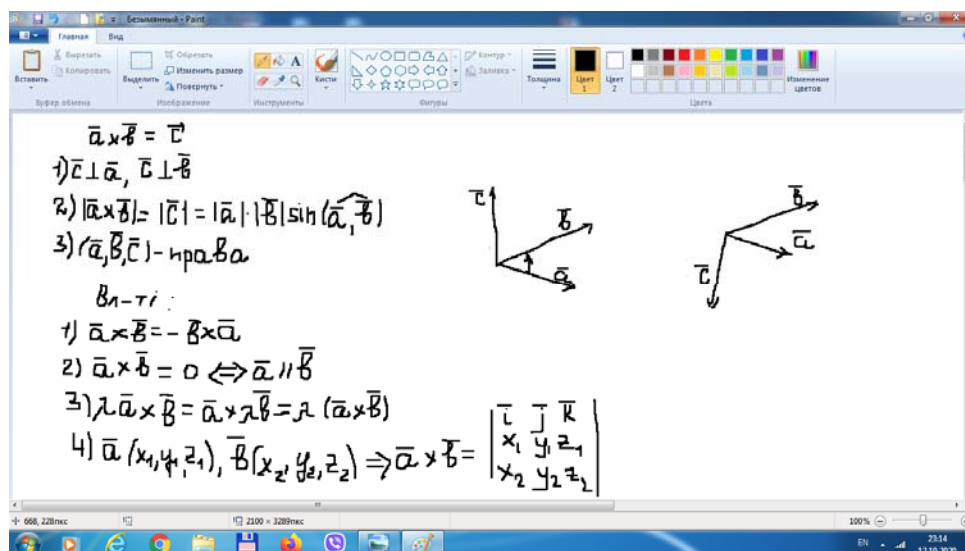 Безымянный - Paint
Главная Вид
Вставить
Вырезать
Копировать
Буфер обмена
Выделить
Обрезать
Изменить размер
Повернуть
Изображение
Инструменты
Кисти
Контур
Заливка
Фигуры
Толщина
Цвет 1
Цвет 2
Изменение цветов
Цвета
a̅ x b̅ = c̅
1) c̅ ⊥ a̅, c̅ ⊥ b̅
2) |a̅ x b̅| = |c̅| = |a̅|·|b̅| sin(a̅, b̅)
3) (a̅, b̅, c̅) - права
c̅ b̅ a̅
b̅ a̅ c̅
Вл-ті:
1) a̅ x b̅ = - b̅ x a̅
2) a̅ x b̅ = 0 ⇔ a̅ // b̅
3) λ a̅ x b̅ = a̅ x λ b̅ = λ (a̅ x b̅)
4) a̅ (x₁, y₁, z₁), b̅ (x₂, y₂, z₂) ⇒ a̅ x b̅ =
i̅ j̅ k̅
x₁ y₁ z₁
x₂ y₂ z₂
668, 228пкс
2100 × 3289пкс
100%
EN
23:14
12.10.2020